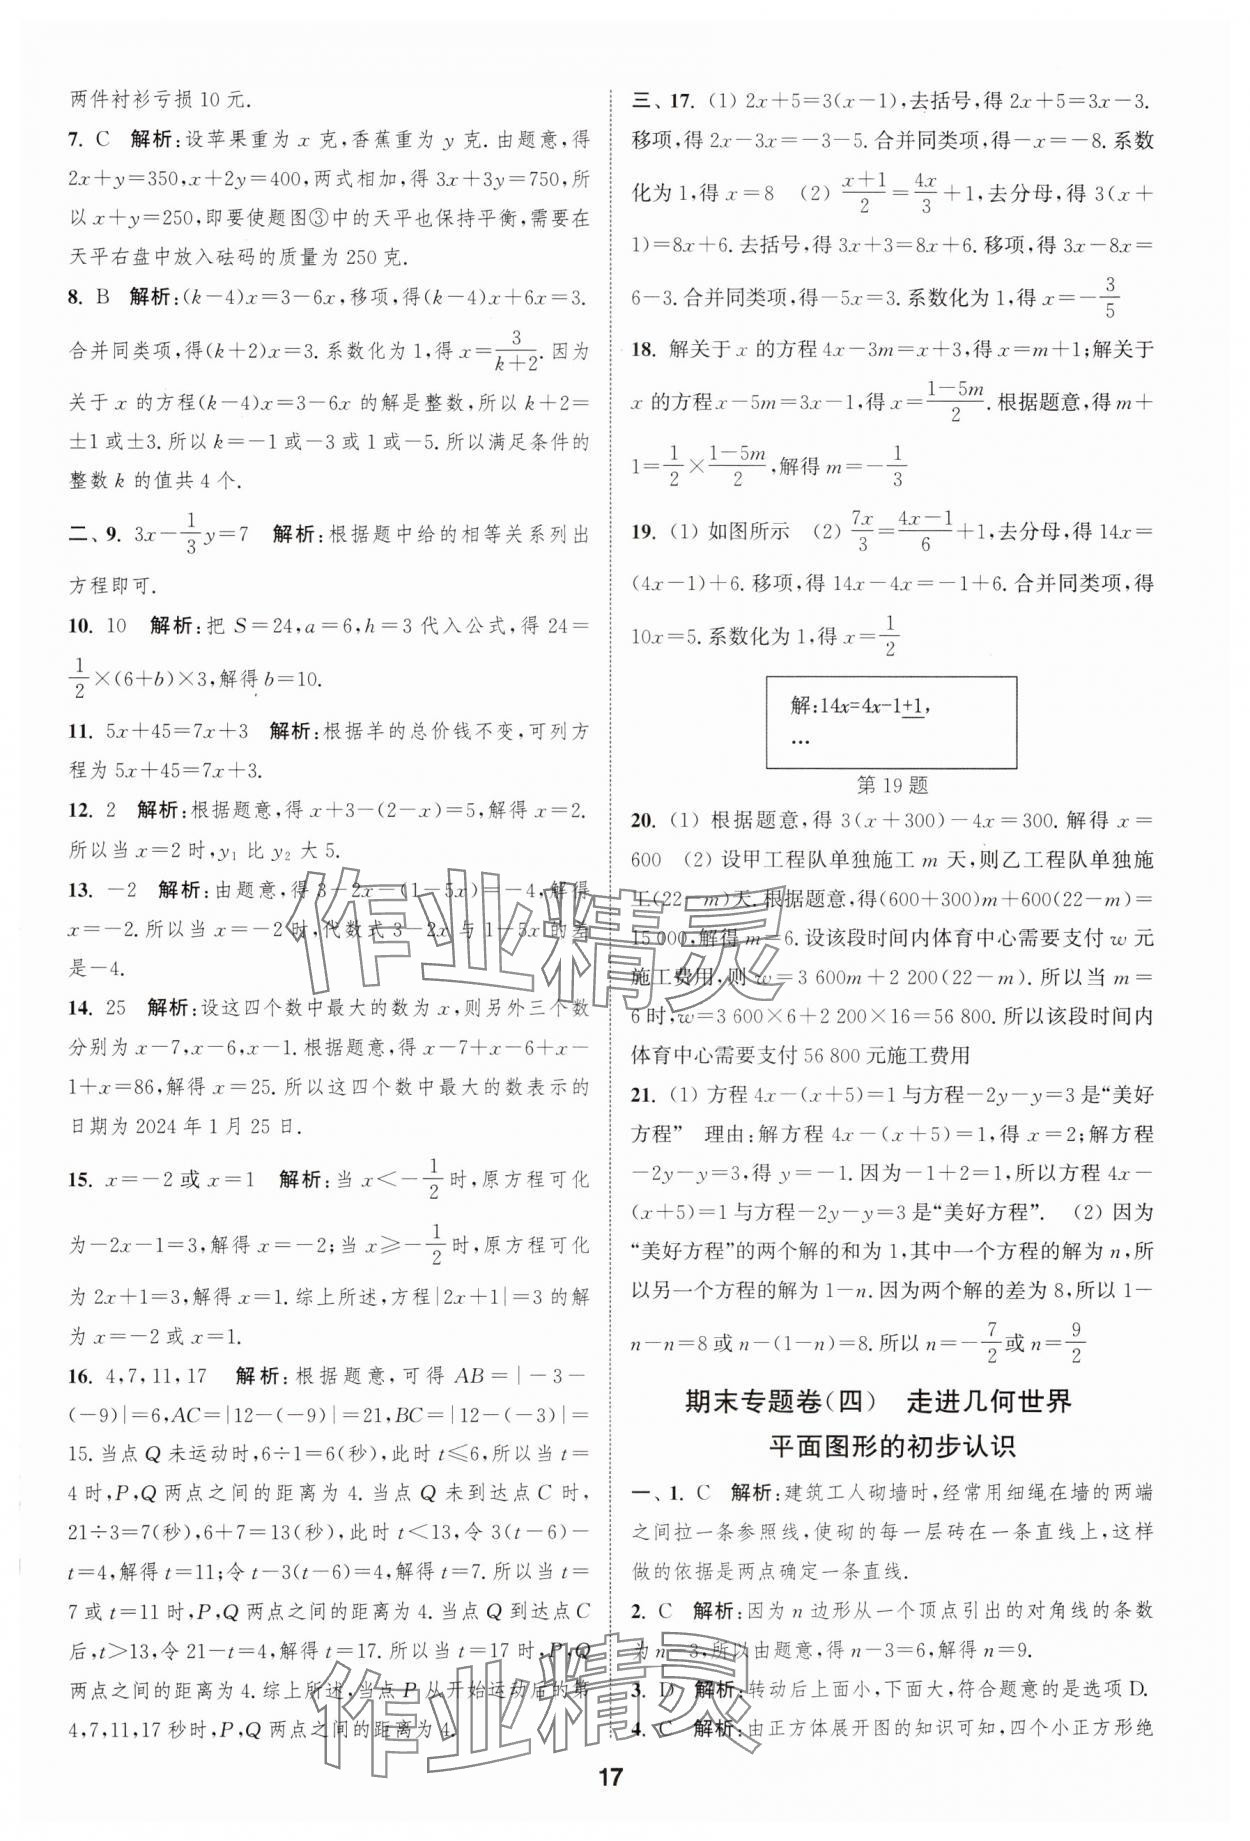 两件衬衫亏损 10 元.
7. C 解析:设苹果重为 x 克,香蕉重为 y 克.由题意,得
2x+y=350,x+2y=400,两式相加,得 3x+3y=750,所
以 x+y=250,即要使题图③中的天平也保持平衡,需要在
天平右盘中放入砝码的质量为 250 克.
8. B 解析:(k-4)x=3-6x,移项,得(k-4)x+6x=3.
合并同类项,得(k+2)x=3.系数化为 1,得 x=3/(k+2).因为
关于 x 的方程(k-4)x=3-6x 的解是整数,所以 k+2=
±1 或±3.所以 k=-1 或-3 或 1 或-5.所以满足条件的
整数 k 的值共 4 个.
二、9. 3x-1/3y=7 解析:根据题中给的相等关系列出
方程即可.
10. 10 解析:把 S=24,a=6,h=3 代入公式,得 24=
1/2×(6+b)×3,解得 b=10.
11. 5x+45=7x+3 解析:根据羊的总价钱不变,可列方
程为 5x+45=7x+3.
12. 2 解析:根据题意,得 x+3-(2-x)=5,解得 x=2.
所以当 x=2 时,y₁ 比 y₂ 大 5.
13. -2 解析:由题意,得 3-2x-(1-5x)=-4,解得
x=-2.所以当 x=-2 时,代数式 3-2x 与 1-5x 的差
是-4.
14. 25 解析:设这四个数中最大的数为 x,则另外三个数
分别为 x-7,x-6,x-1.根据题意,得 x-7+x-6+x-
1+x=86,解得 x=25.所以这四个数中最大的数表示的
日期为 2024 年 1 月 25 日.
15. x=-2 或 x=1 解析:当 x<-1/2时,原方程可化
为-2x-1=3,解得 x=-2;当 x≥-1/2时,原方程可化
为 2x+1=3,解得 x=1.综上所述,方程|2x+1|=3 的解
为 x=-2 或 x=1.
16. 4,7,11,17 解析:根据题意,可得 AB=|-3-
(-9)|=6,AC=|12-(-9)|=21,BC=|12-(-3)|=
15.当点 Q 未运动时,6÷1=6(秒),此时 t≤6,所以当 t=
4 时,P,Q 两点之间的距离为 4.当点 Q 未到达点 C 时,
21÷3=7(秒),6+7=13(秒),此时 t<13,令 3(t-6)-
t=4,解得 t=11;令 t-3(t-6)=4,解得 t=7.所以当 t=
7 或 t=11 时,P,Q 两点之间的距离为 4.当点 Q 到达点 C
后,t>13,令 21-t=4,解得 t=17.所以当 t=17 时,P,Q
两点之间的距离为 4.综上所述,当点 P 从开始运动后的第
4,7,11,17 秒时,P,Q 两点之间的距离为 4.
三、17. (1) 2x+5=3(x-1),去括号,得 2x+5=3x-3.
移项,得 2x-3x=-3-5.合并同类项,得-x=-8.系数
化为 1,得 x=8 (2) (x+1)/2=4x/3+1,去分母,得 3(x+
1)=8x+6.去括号,得 3x+3=8x+6.移项,得 3x-8x=
6-3.合并同类项,得-5x=3.系数化为 1,得 x=-3/5
18. 解关于 x 的方程 4x-3m=x+3,得 x=m+1;解关于
x 的方程 x-5m=3x-1,得 x=(1-5m)/2.根据题意,得 m+
1=1/2×(1-5m)/2,解得 m=-1/3
19. (1) 如图所示 (2) 7x/3=(4x-1)/6+1,去分母,得 14x=
(4x-1)+6.移项,得 14x-4x=-1+6.合并同类项,得
10x=5.系数化为 1,得 x=1/2
解:14x=4x-1+1,
…
第 19 题
20. (1) 根据题意,得 3(x+300)-4x=300.解得 x=
600 (2) 设甲工程队单独施工 m 天,则乙工程队单独施
工(22-m)天.根据题意,得(600+300)m+600(22-m)=
15 000,解得 m=6.设该段时间内体育中心需要支付 w 元
施工费用,则 w=3 600m+2 200(22-m).所以当 m=
6 时,w=3 600×6+2 200×16=56 800.所以该段时间内
体育中心需要支付 56 800 元施工费用
21. (1) 方程 4x-(x+5)=1 与方程-2y-y=3 是“美好
方程” 理由:解方程 4x-(x+5)=1,得 x=2;解方程
-2y-y=3,得 y=-1.因为-1+2=1,所以方程 4x-
(x+5)=1 与方程-2y-y=3 是“美好方程”. (2) 因为
“美好方程”的两个解的和为 1,其中一个方程的解为 n,所
以另一个方程的解为 1-n.因为两个解的差为 8,所以 1-
n-n=8 或 n-(1-n)=8.所以 n=-7/2或 n=9/2
期末专题卷(四) 走进几何世界
平面图形的初步认识
一、1. C 解析:建筑工人砌墙时,经常用细绳在墙的两端
之间拉一条参照线,使砌的每一层砖在一条直线上,这样
做的依据是两点确定一条直线.
2. C 解析:因为 n 边形从一个顶点引出的对角线的条数
为 n-3,所以由题意,得 n-3=6,解得 n=9.
3. D 解析:转动后上面小,下面大,符合题意的是选项 D.
4. C 解析:由正方体展开图的知识可知,四个小正方形绝
17
作业精灵
作业精灵